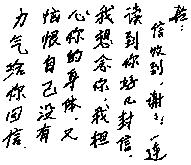 信收到，谢谢！一连
读到你好几封信。
我想念你，我担
心你的身体，又
恼恨自己没有
力气给你回信